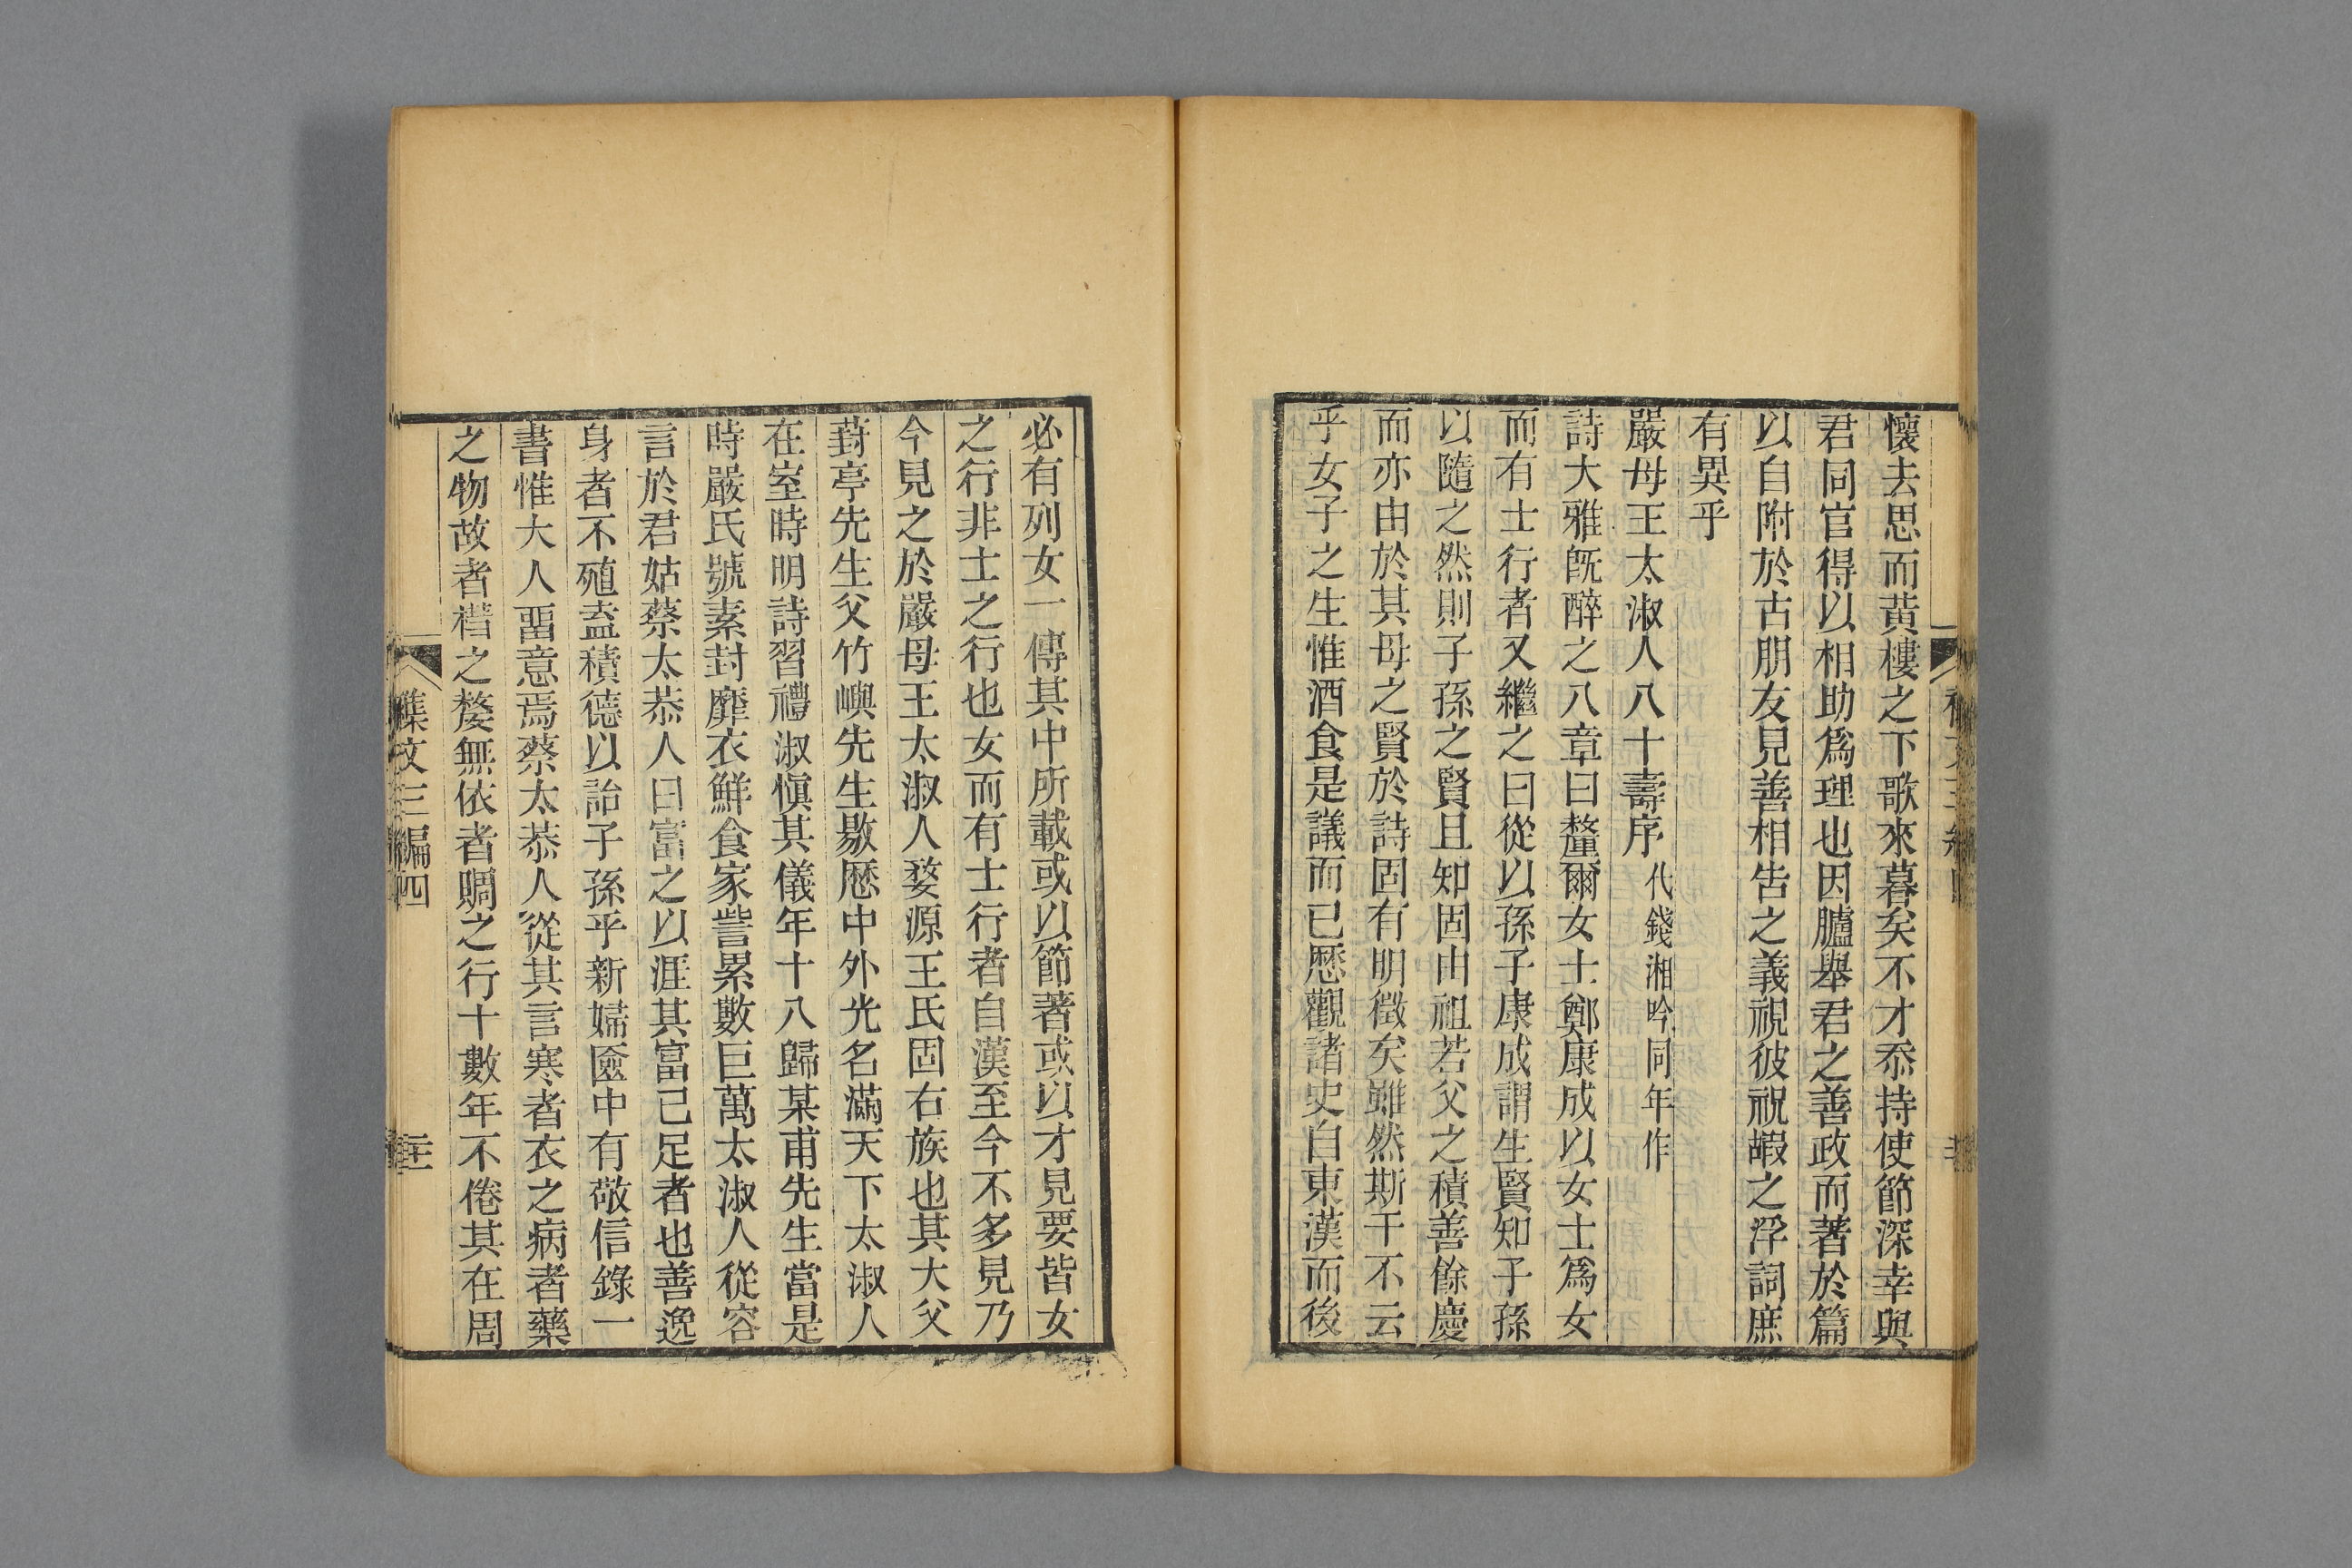 懷去思而黄樓之下歌來暮矣不才忝持使節深幸與
君同官得以相助爲理也因臚舉君之善政而著於篇
以自附於古朋友見善相告之義視彼祝嘏之浮詞庶
有異乎
嚴母王太淑人八十壽序 代錢湘吟同年作
詩大雅旣醉之八章曰釐爾女士鄭康成以女士爲女
而有士行者又繼之曰從以孫子康成謂生賢知子孫
以隨之然則子孫之賢且知固由祖若父之積善餘慶
而亦由於其母之賢於詩固有明徵矣雖然斯干不云
乎女子之生惟酒食是議而已歷觀諸史自東漢而後
必有列女一傳其中所載或以節著或以才見要皆女
之行非士之行也女而有士行者自漢至今不多見乃
今見之於嚴母王太淑人婺源王氏固右族也其大父
葑亭先生父竹嶼先生敭歷中外光名滿天下太淑人
在室時明詩習禮淑愼其儀年十八歸某甫先生當是
時嚴氏號素封靡衣鮮食家訾累數巨萬太淑人從容
言於君姑蔡太恭人曰富之以涯其富已足者也善逸
身者不殖盍積德以詒子孫乎新婦匳中有敬信錄一
書惟大人畱意焉蔡太恭人從其言寒者衣之病者藥
之物故者槥之嫠無依者賙之行十數年不倦其在周
襍文三編四